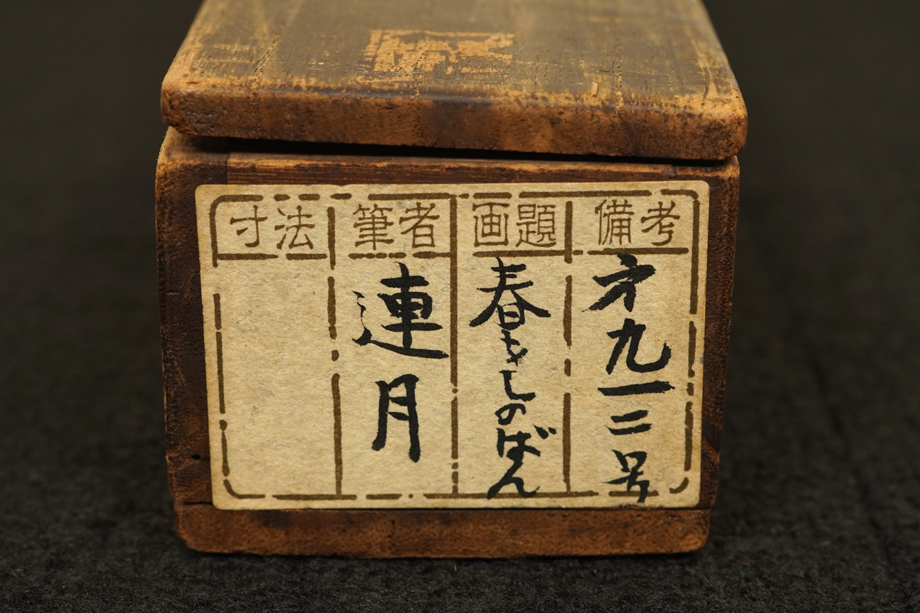 備考
才九一二号
画題
春をしのばん
筆者
連月
寸法